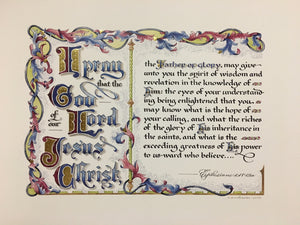 I pray
that the
God
of our
Lord
Jesus
Christ
the Father of glory, may give
unto you the spirit of wisdom and
revelation in the knowledge of
him: the eyes of your understand-
ing being enlightened that you
may know what is the hope of
your calling, and what the riches
of the glory of his inheritance in
the saints, and what is the
exceeding greatness of His power
to us-ward who believe....
Ephesians